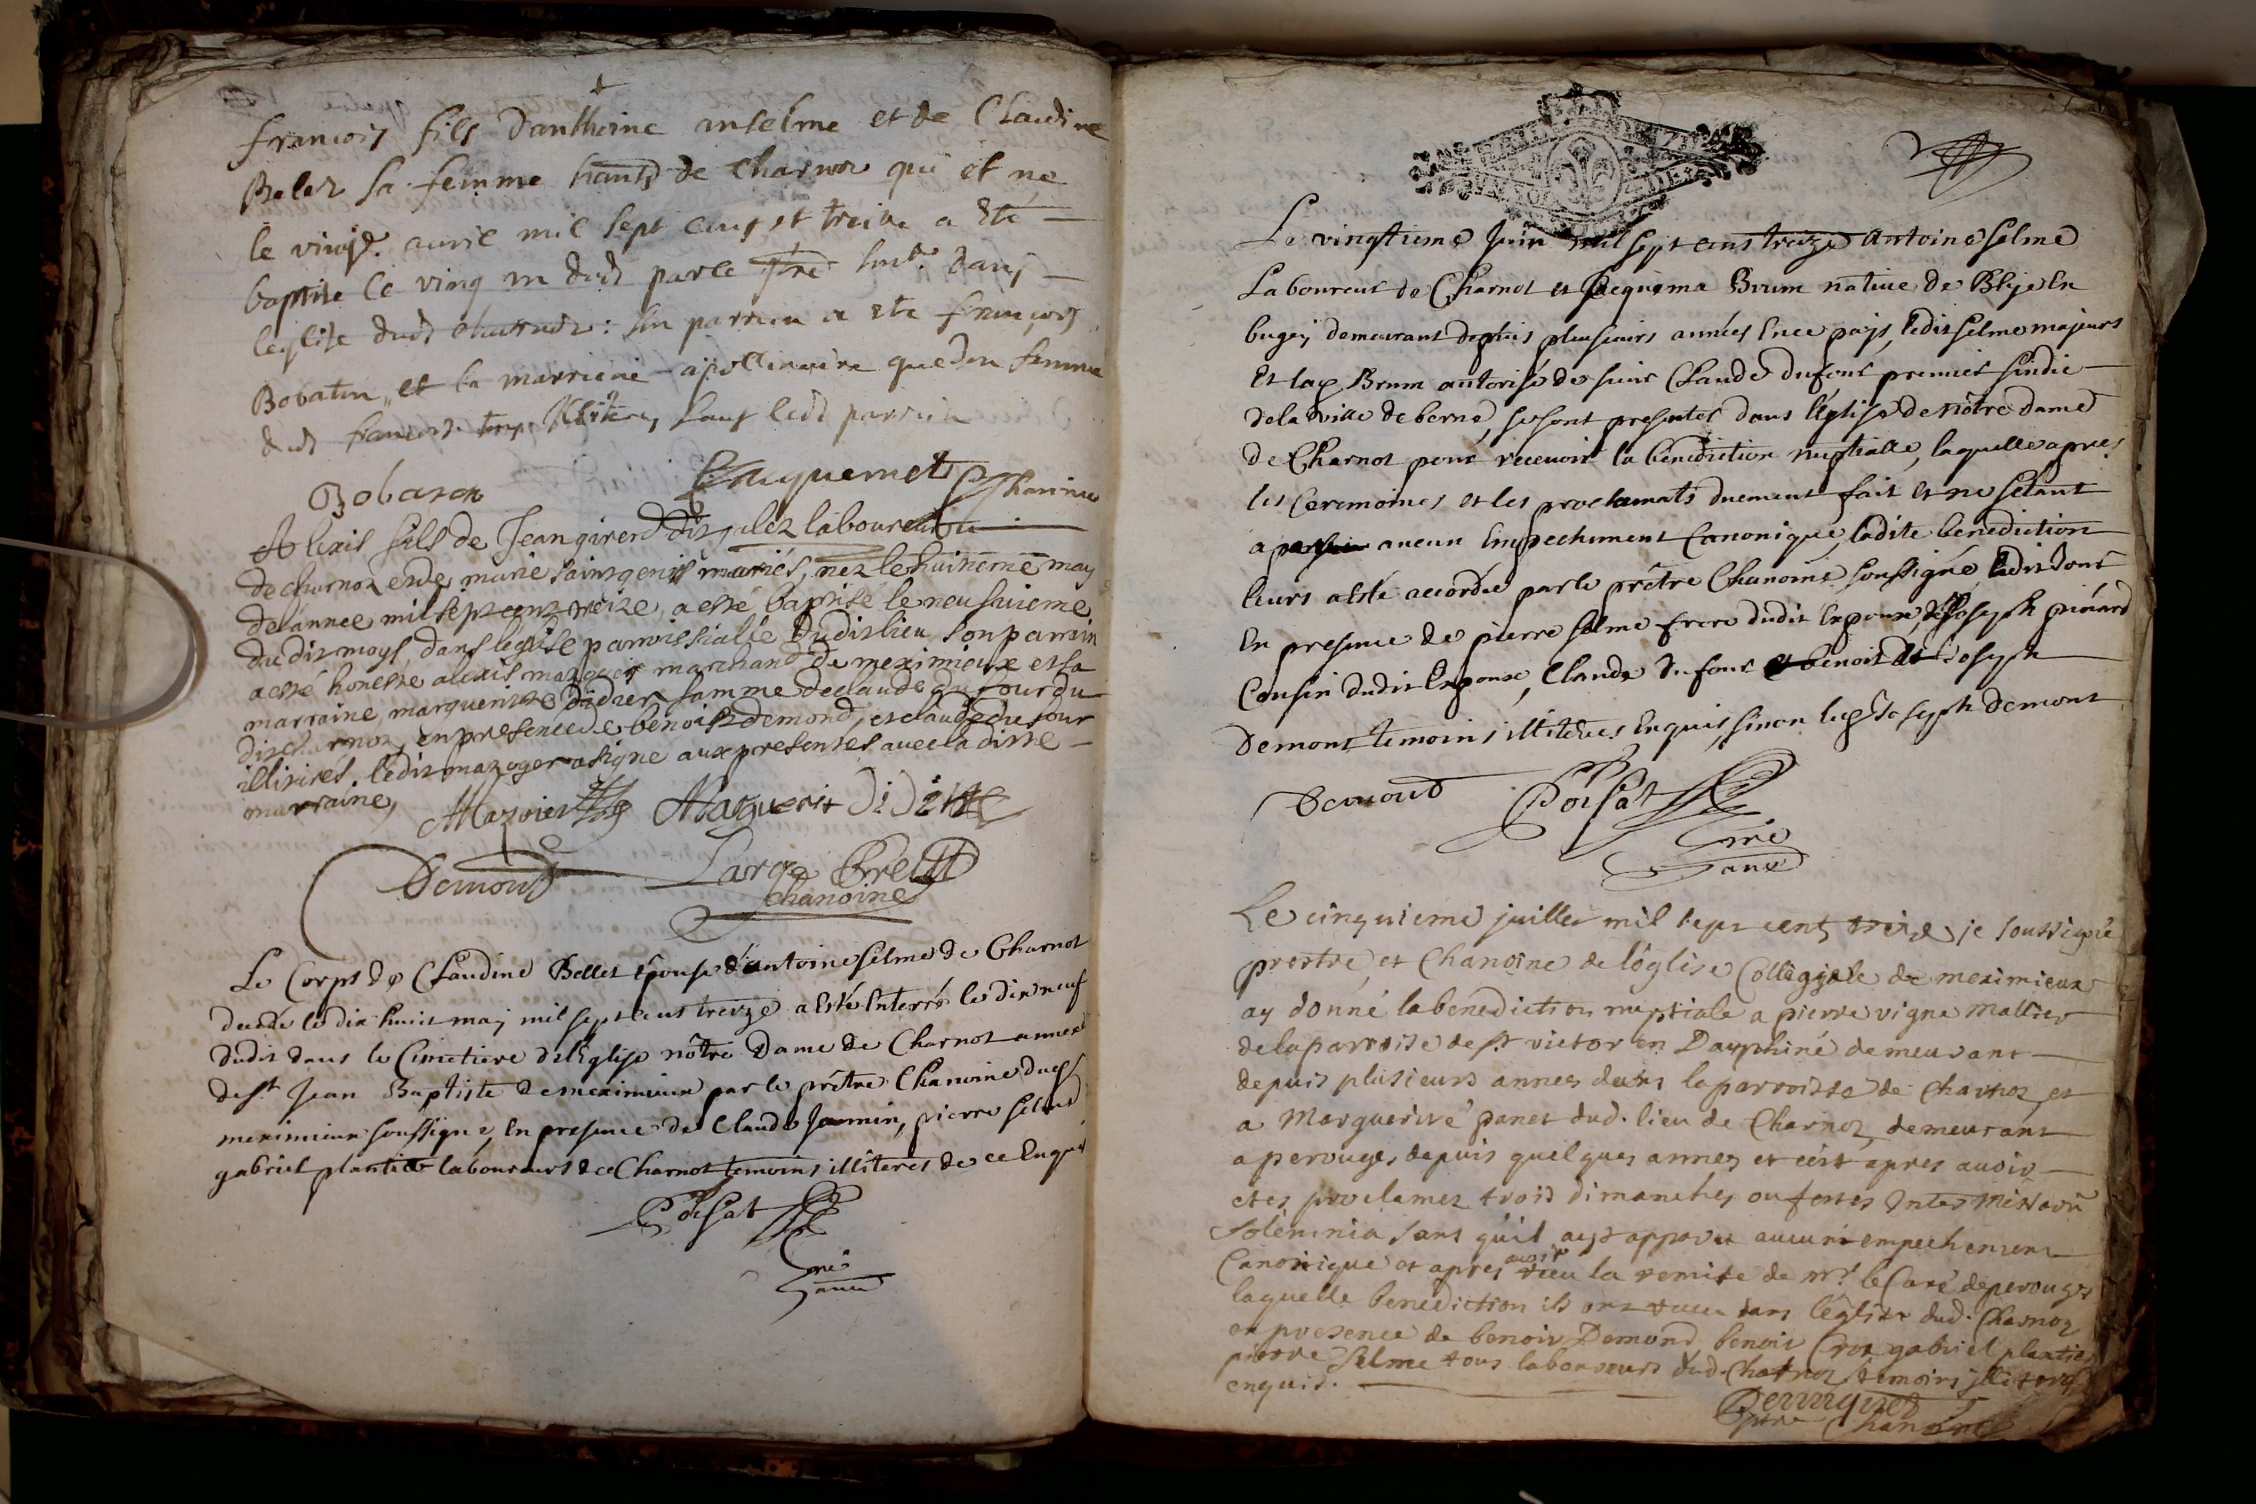 francois fils Danthoine anselme et de Claudine
Belez sa femme hants de Charnoz qui et né
le vingt. avril mil sept cens et treize a Eté
baptise le ving un dud par le pre sous. dans
leglise dud charnoz: son parrein a ete francois
Bobaton, et la marreine apollinaire quedon femme
dud francois illiteres sauf led parrein
Bobaton
Chanoine
Alexis fils de Jean girerd dit laboureur
de charnoz et de marie saint genis mariés, nez le huitième may
de l'année mil sept cent treize, a esté baptisé le neufvieme
du dit moys, dans leglise parroissialle dudit lieu son parrin
a esté honeste alexis marchand de meximieux et sa
marraine marguerite didier famme de claude du four du
dit charnoz, en presence de benoist demond, et claude du four
illitirés, ledit a signe aux presentes avec la ditte
marraine,
Marguerit DiDier
Demond Large Pre
chanoine
Le Corps de Claudine Bellet épouse d'antoine selme de Charnot
decedé le dix huit maj mil sept cens treize a esté Enterré le dix neuf
dudit dans le Cimetiere de l'Eglise nôtre Dame de Charnot annexe
de st Jean Baptiste de meximieux par le prêtre Chanoine dud
meximieux soussigné, En presence de Claude Jamin, pierre selme
gabriel plantier laboureurs de ce Charnot temoins illiteres de ce Enquis
Poisat
Le vingtieme Juin mil sept cens treize antoine selme
Laboureur de Charnot et Jacquema Brum native de Blije En
bugej demeurant depuis plusieurs années En ce pays, ledit selme majeurs
Et lad Brum autorisé de sieur Claude dufour premier sindic
de la ville de berne, se sont presentés dans l'Eglise de nôtre dame
de Charnot pour recevoir la benediction nuptialle, laquelle apres
les Ceremoines et les proclamats duement fait et ne s'étant
a aucun Empechement Canonique, ladite benediction
leurs a Esté accordée par le prêtre Chanoine soussigné, ledit Jour
En presence de pierre selme frere dudit Espoux, de Joseph
Cousin dudit Espoux, Claude Dufour et benoit de Joseph
Demont temoins illiteres Enquis sinon led Joseph Demont
Demond Poisat
Le cinquieme juillet mil sept cent treize je soussigné
prestre et Chanoine de l'église Collegiale de meximieux
ay donné la benediction nuptiale a pierre vigne
de la parroise de st victor en Dauphiné demeurant
depuis plusieurs annees dans la parroisse de charnoz, et
a Marguerite panet dud. lieu de Charnoz, demeurant
a perouges, depuis quelques annes et c'est apres avoir
etes proclamez trois dimanches ou festes Inter Missarũ
solemnia sans qu'il ayt apparu aucun empechement
Canonique et apres avoir veu la remise de mr. le Curé de perouges
laquelle benediction ils ont receu dans l'église dud. Charnoz
en presence de benoit Demond, benoit Croz gabriel plantier
pierre selme tous laboureurs dud. Charnoz temoins illiteres
enquis.
pre Chanoine